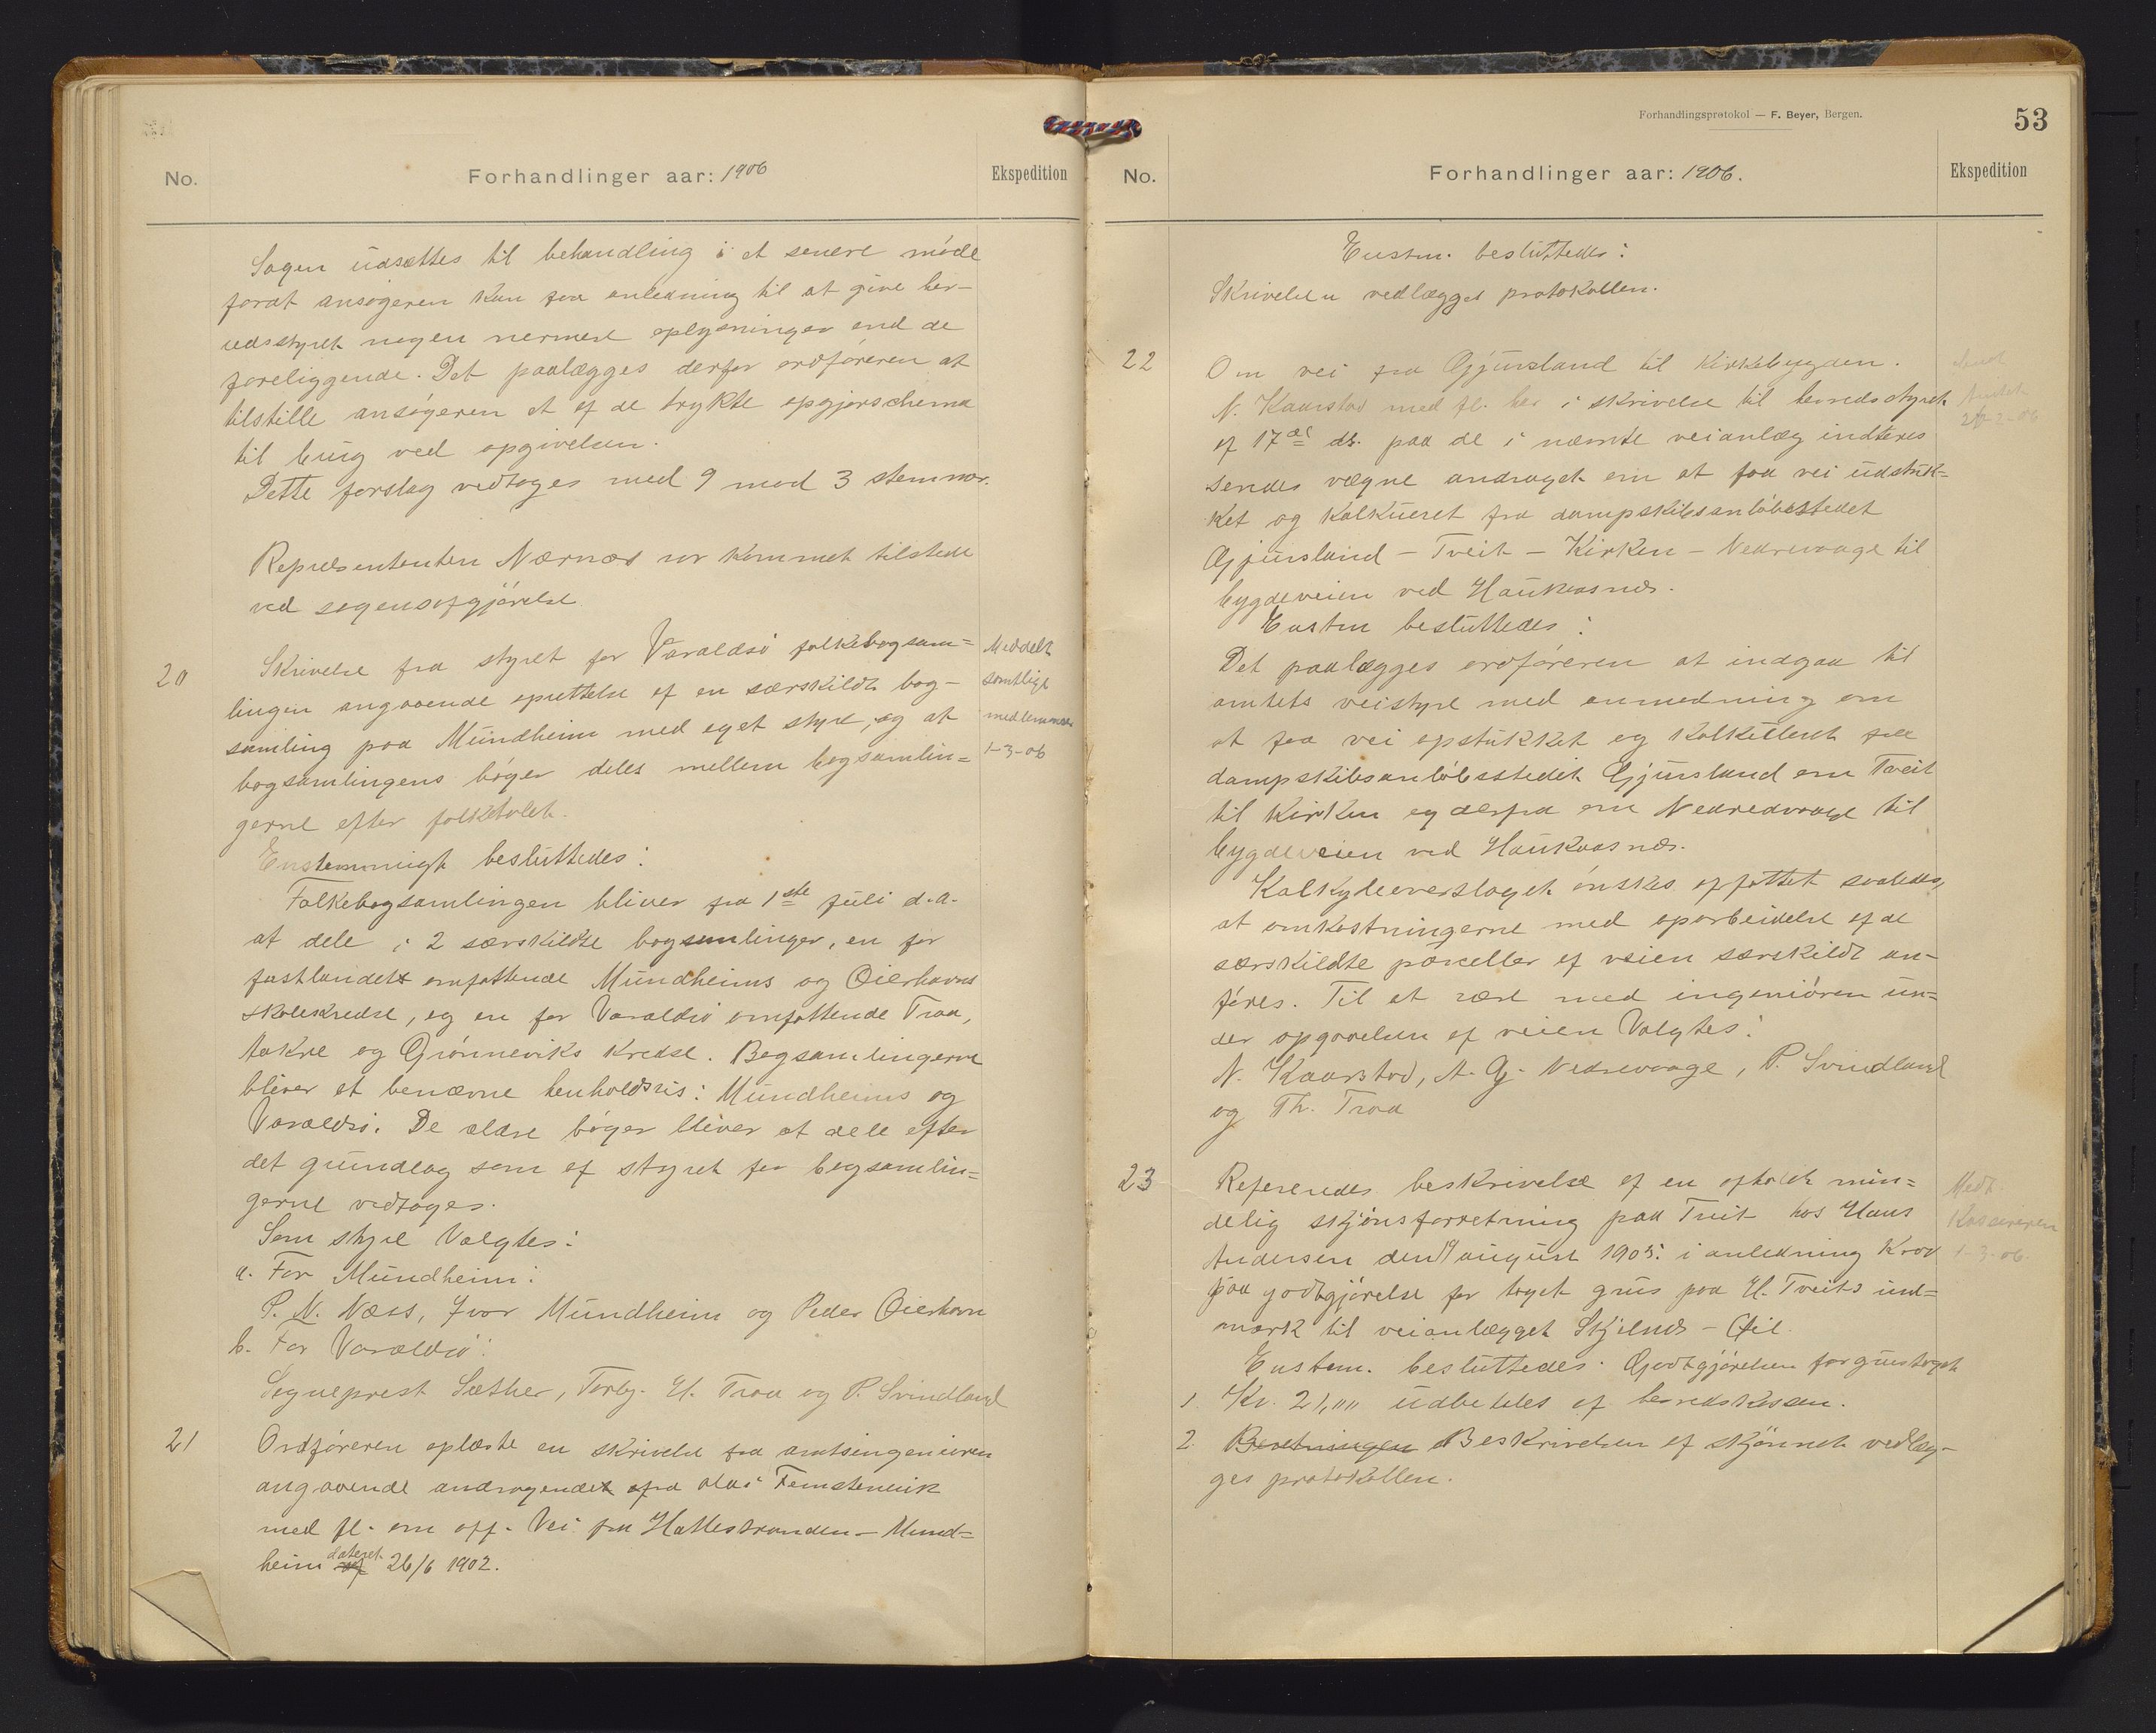 No.
Forhandlinger aar: 1906
Ekspedition
Sagen udsættes til behandling i et senere møde
forat ansøgeren kan faa anledning til at give her-
redsstyret nogen nermere oplysninger end de
foreliggende. Det paalægges derfor ordføreren at
tilstille ansøgeren et af de trykte opgjørschema
til brug ved opgivelsen.
Dette forslag vedtages med 9 mod 3 stemmer.
Representanten Nærnæs var kommet tilstede
ved sagensafgjørelse
20
Skrivelse fra styret for Varaldsø folkebogsam=
lingen angaaende oprettelse af en særskildt bog-
samling paa Mundheim med eget styre, og at
bogsamlingens bøger deles mellem bogsamlin=
gerne efter folketalet.
Meddelt
samtlige
medlemmer
1-3-06
Enstemmigt besluttedes:
Folkebogsamlingen bliver fra 1ste juli d.a.
at dele i 2 særskildte bogsamlinger, en for
fastlandet omfattende Mundheims og Øierhavns
skolekredse, og en for Varaldsø omfattende Traa,
Aakre og Grønneviks kredse. Bogsamlingerne
bliver at benævne henholdsvis: Mundheims og
Varaldsø. De ældre bøger bliver at dele efter
det grundlag som af styret for bogsamlin=
gerne vedtages.
Som styre Valgtes:
a. For Mundheim:
P. N. Næss, Ivar Mundheim og Peder Øierhavn
b. For Varaldsø:
Sogneprest Sæther, Torbj. H. Traa og P. Svindland
21
Ordføreren oplæste en skrivelse fra amtsingeniøren
angaaende andragendet fra Olai Femstenevik
med fl. om off. Vei fra Hattestranden - Mund=
heim dateret 26/6 1902.
Forhandlingsprotokol — F. Beyer, Bergen.
53
No.
Forhandlinger aar: 1906.
Ekspedition
Enstm. besluttedes:
Skrivelsen vedlægges protokollen.
22
Om vei fra Gjjursland til Kirkebygden.
N. Kaarstad med fl. har i skrivelse til herredsstyret
af 17de ds. paa de i nævnte veianlæg indteres
seredes vægne andraget om at faa vei udstuk=
ket og kalkueret fra dampskibsanløbsstedet
Gjjursland - Tveit - Kirken - Nedrevaage til
bygdeveien ved Haukaasnæs.
Amtet
26-2-06
Enstm besluttedes:
Det paalægges ordføreren at indgaa til
amtets veistyre med anmodning om
at faa vei opstukket og kalkuleret fra
dampskibsanløbsstedet Gjjursland om Tveit
til kirken og derfra om Nedrevaage til
bygdeveien ved Haukaasnæs.
Kalkyleoverslaget ønskes opfattet saaledes,
at omkostningerne med oparbeidelse af de
særskildte parceller af veien særskildt an-
føres. Til at være med ingeniøren un=
der opgaaelsen af veien Valgtes:
N. Kaarstad, A. G. Nedrevaage, P. Svindland
og Th. Traa
23
Refereredes beskrivelse af en afholdt min=
delig skjønsforretning paa Tveit hos Hans
Andersen den 9 august 1905. i anledning krav
paa godtgjørelse for taget grus paa H. Tveits ud=
mark til veianlægget Skjelnæs - Øie.
Medt.
Kassereren
1-3-06.
Enstem. besluttedes. Godtgjørelsen for grustaget
1. Kr. 21,00 udbetales af herredskassen.
2. Beretningen Beskrivelsen af skjønnet vedlæg-
ges protokollen.